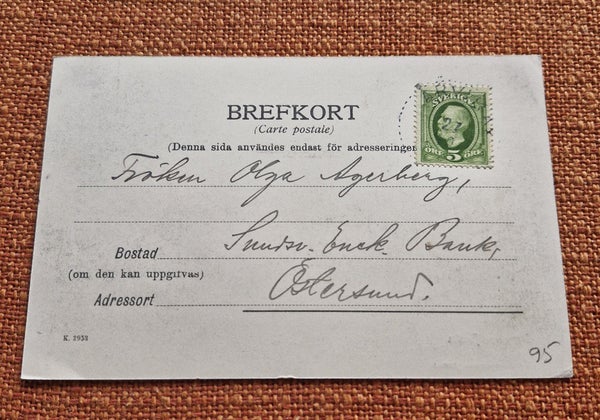 BREFKORT
(Carte postale)
(Denna sida användes endast för adresseringen
SVERIGE
5
ÖRE ÖRE
Fröken Olga Agerberg,
Sundsv. Ensk. Bank,
Bostad
(om den kan uppgifvas)
Östersund.
Adressort
K. 2953
95